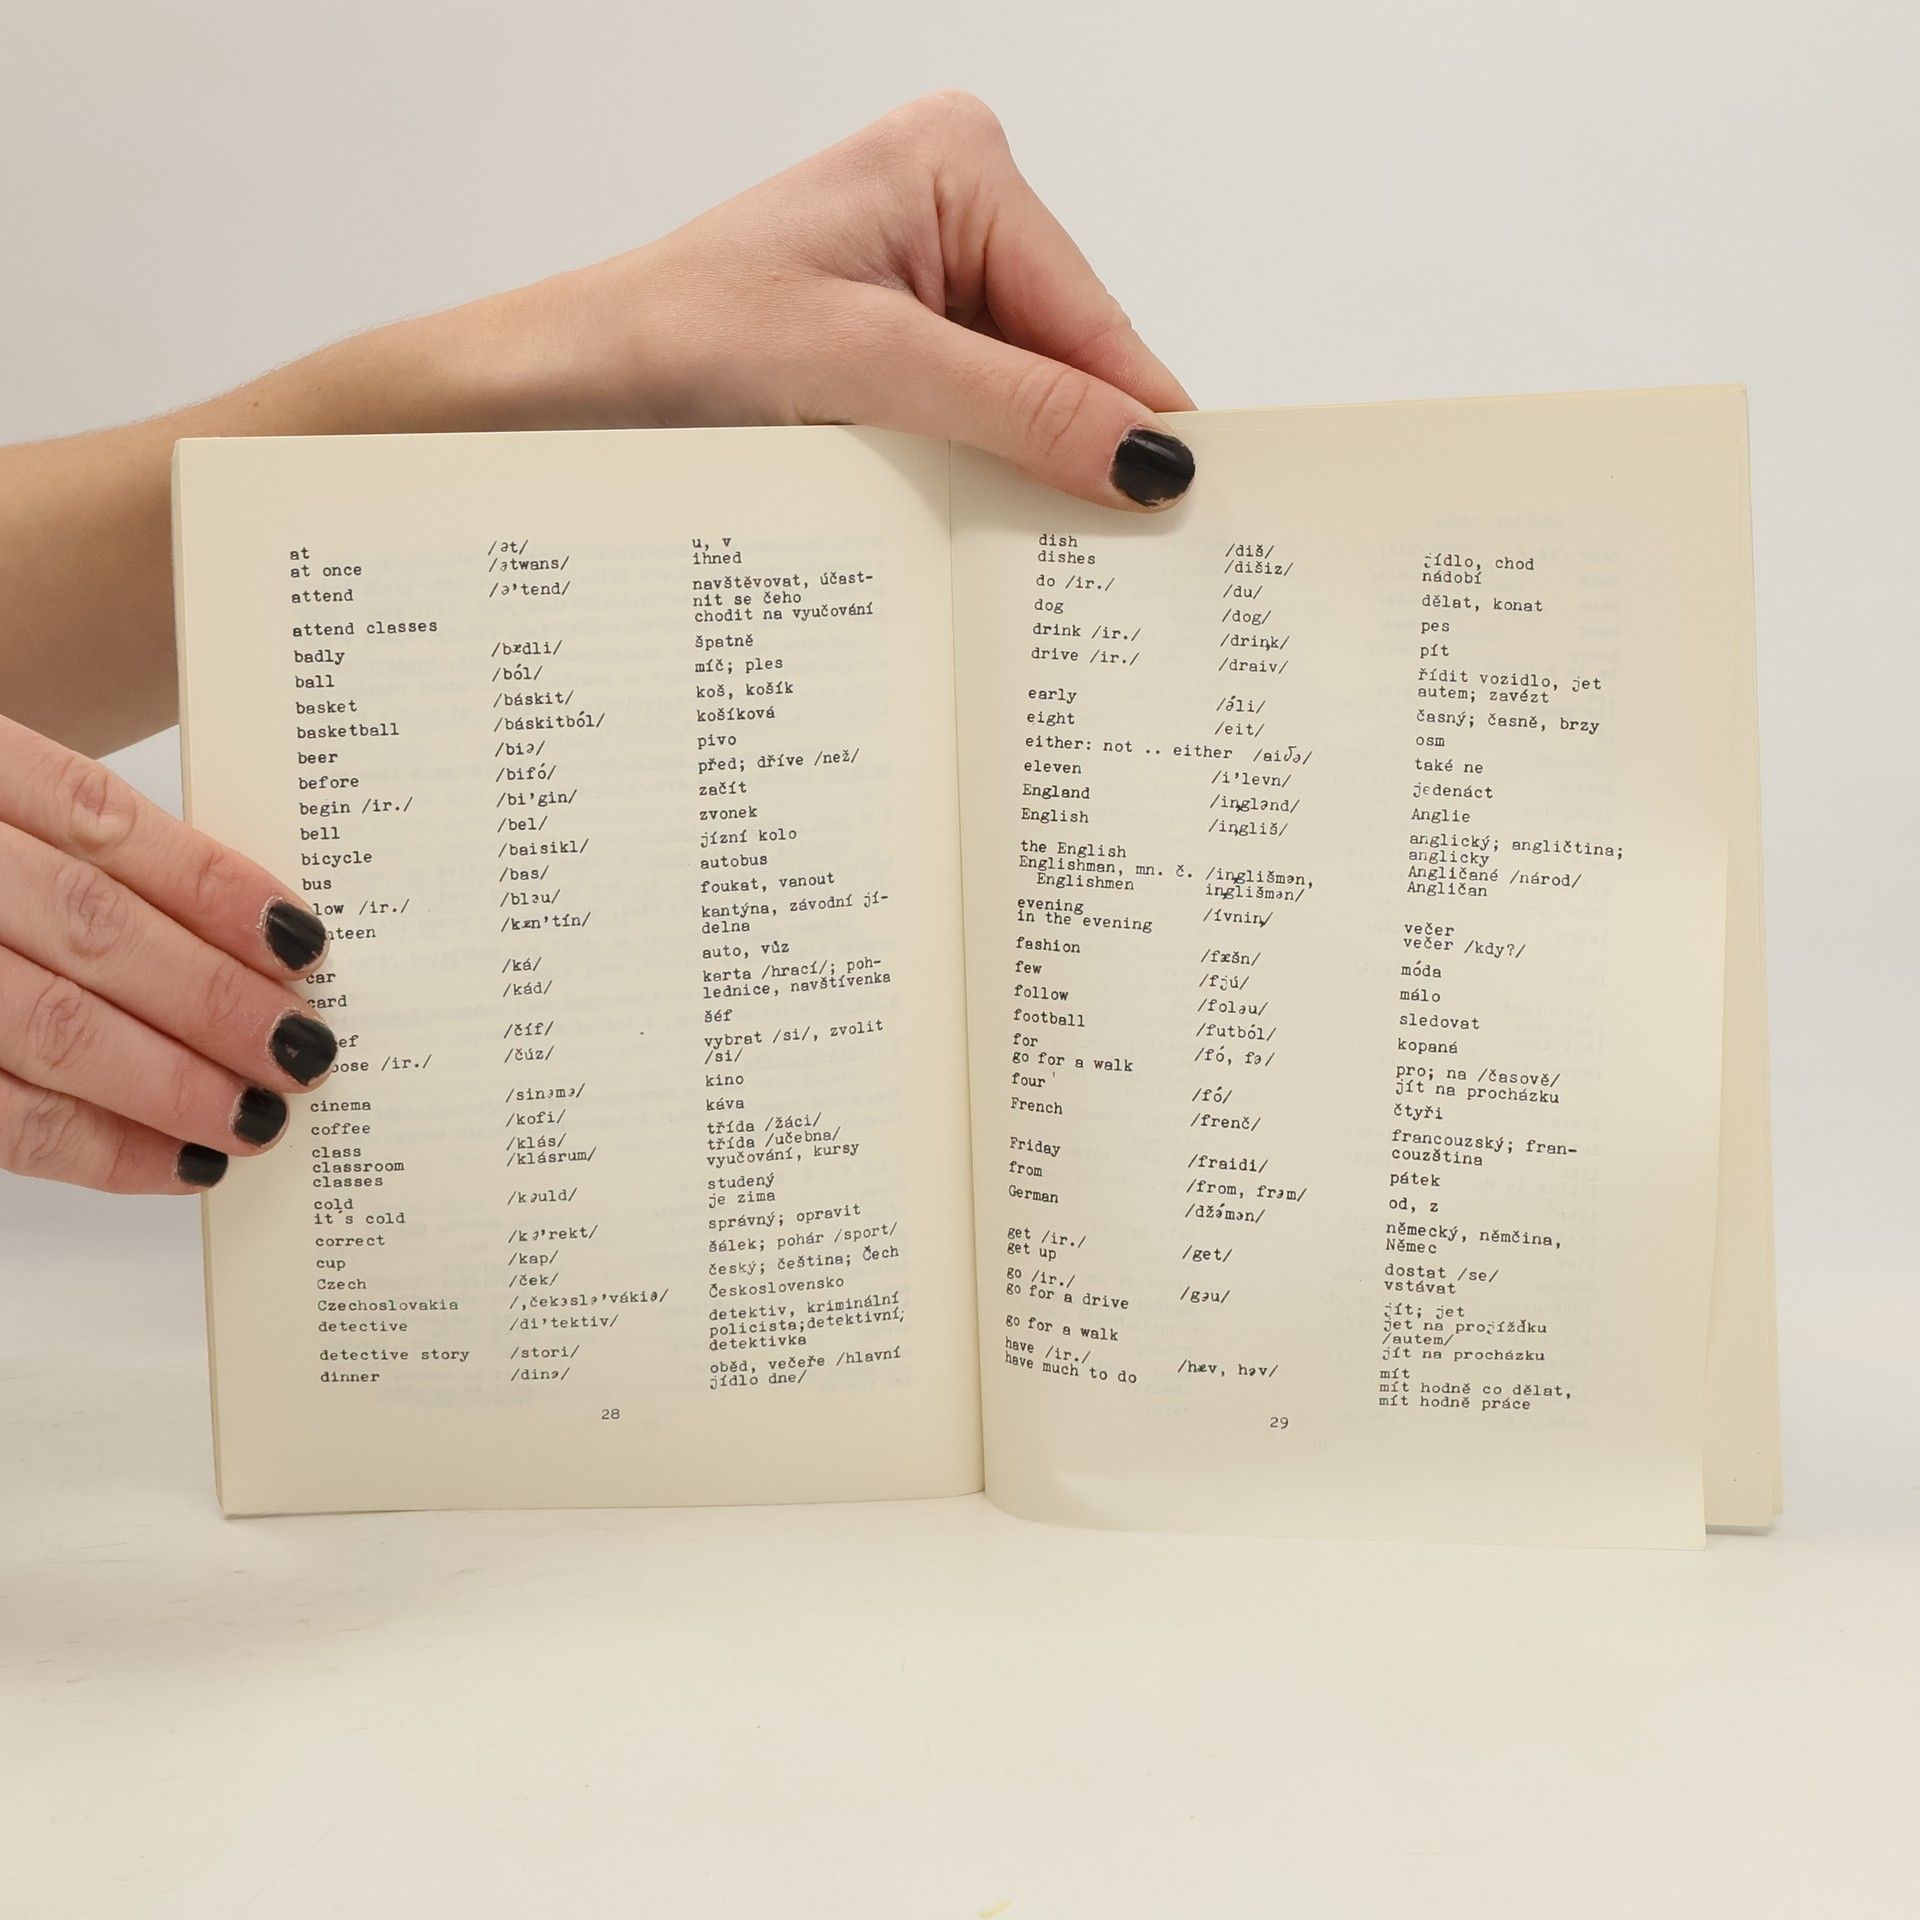 at /ət/ u, v
at once /ətwans/ ihned
attend /ə'tend/ navštěvovat, účast-
nit se čeho
attend classes chodit na vyučování
badly /bædli/ špatně
ball /ból/ míč; ples
basket /báskit/ koš, košík
basketball /báskitból/ košíková
beer /biə/ pivo
before /bifó/ před; dříve /než/
begin /ir./ /bi'gin/ začít
bell /bel/ zvonek
bicycle /baisikl/ jízní kolo
bus /bas/ autobus
low /ir./ /bləu/ foukat, vanout
nteen /kæn'tín/ kantýna, závodní jí-
delna
car /ká/ auto, vůz
card /kád/ karta /hrací/; poh-
lednice, navštívenka
ef /číf/ šéf
oose /ir./ /čúz/ vybrat /si/, zvolit
/si/
cinema /sinəmə/ kino
coffee /kofi/ káva
class /klás/ třída /žáci/
classroom /klásrum/ třída /učebna/
classes vyučování, kursy
cold /kəuld/ studený
it's cold je zima
correct /kə'rekt/ správný; opravit
cup /kap/ šálek; pohár /sport/
Czech /ček/ český; čeština; Čech
Czechoslovakia /,čekəslə'vákiə/ Československo
detective /di'tektiv/ detektiv, kriminální
policista;detektivní;
detective story /stori/ detektivka
dinner /dinə/ oběd, večeře /hlavní
jídlo dne/
28
dish /diš/ jídlo, chod
dishes /dišiz/ nádobí
do /ir./ /du/ dělat, konat
dog /dog/ pes
drink /ir./ /driņk/ pít
drive /ir./ /draiv/ řídit vozidlo, jet
autem; zavézt
early /ə́li/ časný; časně, brzy
eight /eit/ osm
either: not .. either /aiðə/ také ne
eleven /i'levn/ jedenáct
England /iņglənd/ Anglie
English /iņgliš/ anglický; angličtina;
anglicky
the English Angličané /národ/
Englishman, mn. č. /iņglišmən, Angličan
Englishmen iņglišmən/
evening /ívniņ/ večer
in the evening večer /kdy?/
fashion /fæšn/ móda
few /fjú/ málo
follow /foləu/ sledovat
football /futból/ kopaná
for /fó, fə/ pro; na /časově/
go for a walk jít na procházku
four /fó/ čtyři
French /frenč/ francouzský; fran-
couzština
Friday /fraidi/ pátek
from /from, frəm/ od, z
German /džə́mən/ německý, němčina,
Němec
get /ir./ /get/ dostat /se/
get up vstávat
go /ir./ /gəu/ jít; jet
go for a drive jet na projížďku
/autem/
go for a walk jít na procházku
have /ir./ /hæv, həv/ mít
have much to do mít hodně co dělat,
mít hodně práce
29